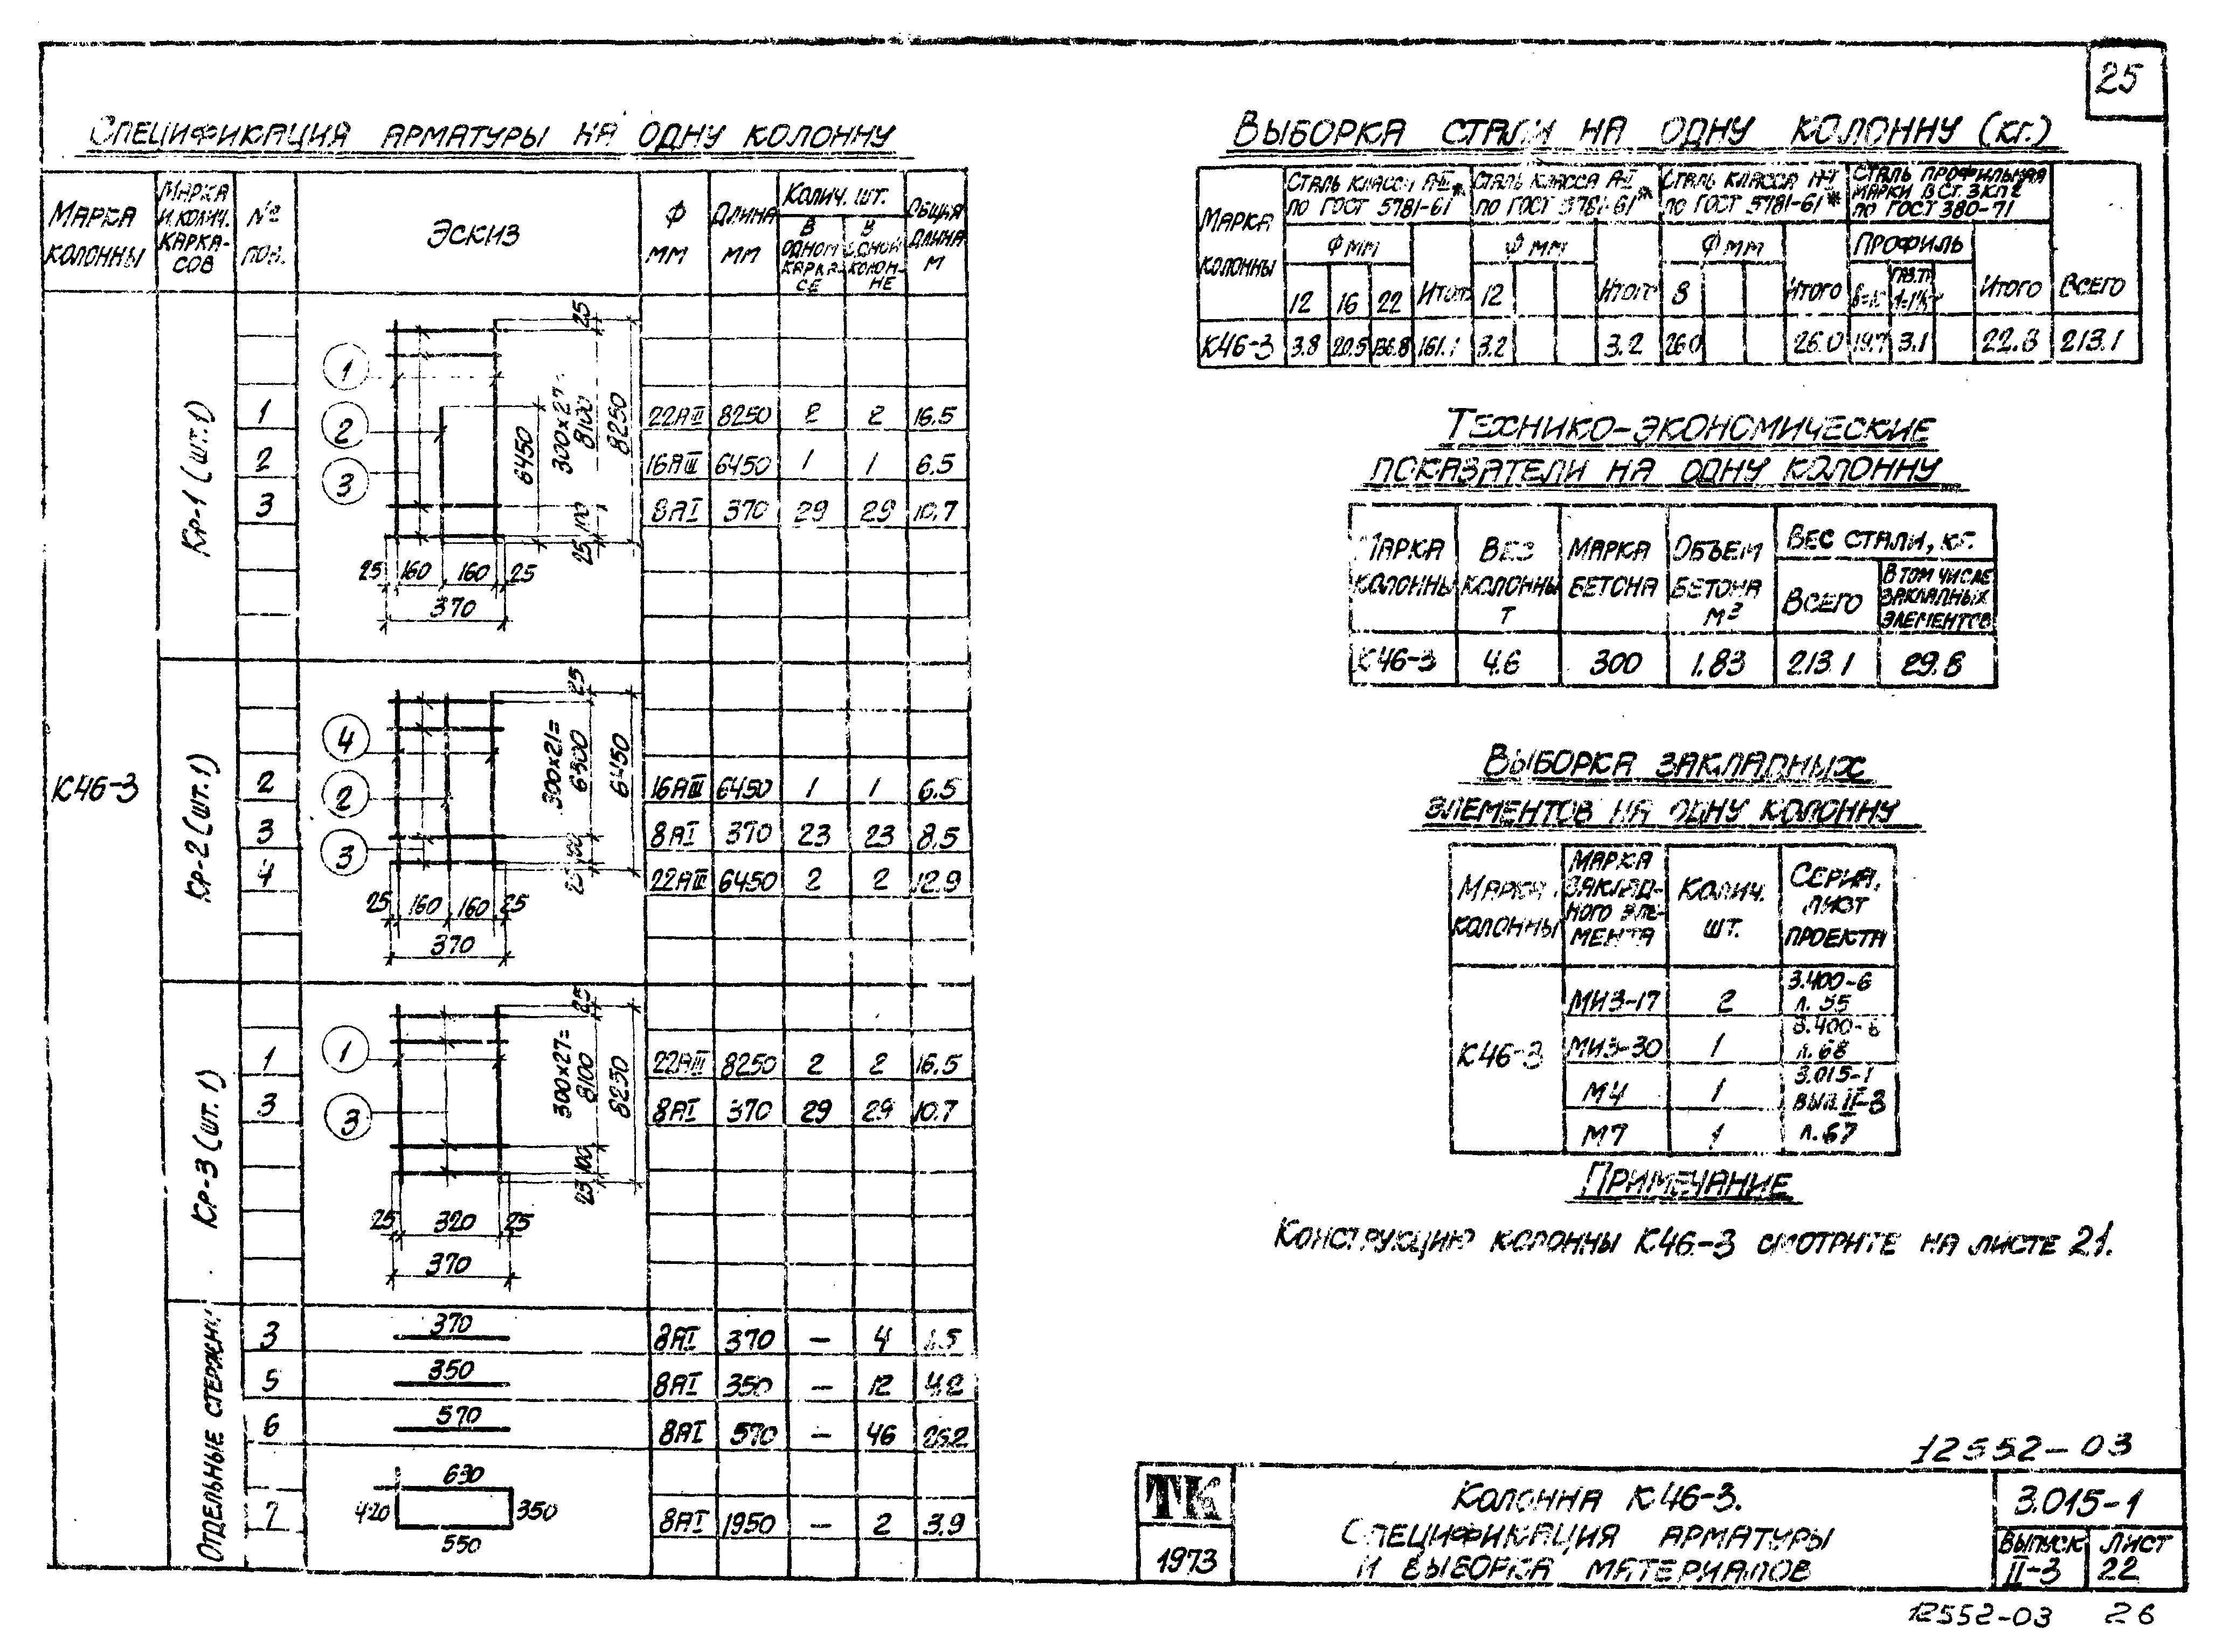 25
СПЕЦИФИКАЦИЯ АРМАТУРЫ НА ОДНУ КОЛОННУ
МАРКА КОЛОННЫ
МАРКА И КОЛИЧ. КАРКАСОВ
№ ПОЗ.
ЭСКИЗ
Ф ММ
ДЛИНА ММ
КОЛИЧ. ШТ.
В ОДНОМ КАРКАСЕ
В ОДНОЙ КОЛОННЕ
ОБЩАЯ ДЛИНА М
К46-3
КР-1 (ШТ.1)
1 22АIII 8250 2 2 16.5
2 16АIII 6450 1 1 6.5
3 8АI 370 29 29 10.7
1 2 3
25 160 160 25
370
6450
300х27=
8100
8250
25 100 25
КР-2 (ШТ.1)
2 16АIII 6450 1 1 6.5
3 8АI 370 23 23 8.5
4 22АIII 6450 2 2 12.9
4 2 3
25 160 160 25
370
300х21=
6300
6450
25 100 25
КР-3 (ШТ.1)
1 22АIII 8250 2 2 16.5
3 8АI 370 29 29 10.7
1 3
25 320 25
370
300х27=
8100
8250
25 100 25
ОТДЕЛЬНЫЕ СТЕРЖНИ
3 370 8АI 370 – 4 1.5
5 350 8АI 350 – 12 4.2
6 570 8АI 570 – 46 26.2
7 630 420 350 550 8АI 1950 – 2 3.9
ВЫБОРКА СТАЛИ НА ОДНУ КОЛОННУ (КГ.)
МАРКА КОЛОННЫ
СТАЛЬ КЛАССА А-III* ПО ГОСТ 5781-61
СТАЛЬ КЛАССА А-I ПО ГОСТ 5781-61*
СТАЛЬ КЛАССА А-I ПО ГОСТ 5781-61*
СТАЛЬ ПРОФИЛЬНАЯ МАРКИ В СТ.3КП2 ПО ГОСТ 380-71
Ф ММ Ф ММ Ф ММ ПРОФИЛЬ
12 16 22 ИТОГО 12 ИТОГО 8 ИТОГО ГАЗ.ТР. ИТОГО ВСЕГО
К46-3 3.8 20.5 136.8 161.1 3.2 3.2 26.0 26.0 19.7 3.1 22.8 213.1
ТЕХНИКО-ЭКОНОМИЧЕСКИЕ
ПОКАЗАТЕЛИ НА ОДНУ КОЛОННУ
МАРКА КОЛОННЫ
ВЕС КОЛОННЫ Т
МАРКА БЕТОНА
ОБЪЕМ БЕТОНА М3
ВЕС СТАЛИ, КГ.
ВСЕГО
В ТОМ ЧИСЛЕ ЗАКЛАДНЫХ ЭЛЕМЕНТОВ
К46-3 4.6 300 1.83 213.1 29.8
ВЫБОРКА ЗАКЛАДНЫХ
ЭЛЕМЕНТОВ НА ОДНУ КОЛОННУ
МАРКА КОЛОННЫ
МАРКА ЗАКЛАДНОГО ЭЛЕМЕНТА
КОЛИЧ. ШТ.
СЕРИЯ, ЛИСТ ПРОЕКТА
К46-3
МИ3-17 2 3.400-6 Л. 55
МИ3-30 1 3.400-6 Л. 68
М4 1 3.015-1 ВЫП. II-3
М7 1 Л. 67
ПРИМЕЧАНИЕ
КОНСТРУКЦИЮ КОЛОННЫ К46-3 СМОТРИТЕ НА ЛИСТЕ 21.
12552-03
ТК
1973
КОЛОННА К46-3.
СПЕЦИФИКАЦИЯ АРМАТУРЫ
И ВЫБОРКА МАТЕРИАЛОВ
3.015-1
ВЫПУСК ЛИСТ
II-3 22
12552-03 26